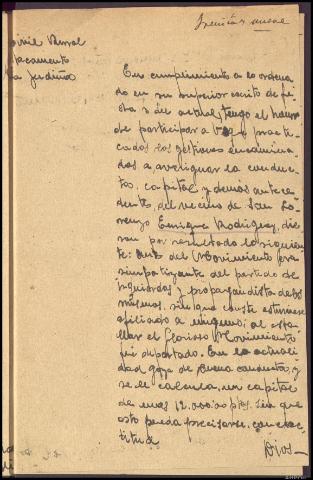 Civil Rural
La Gudiña
En cumplimiento a lo ordena
do en su superior escrito de fe
cha 3 del actual, tengo el honor
de participar a V. que practi
cados las gestiones encamina
das a averiguar la conduc
ta, capital y demás antece
dentes, del vecino de San Lo
renzo Enrique Rodriguez, die
ron por resultado lo siguien
te: Antes del Movimiento era
simpatizante del partido de
izquierdas y propagandista de los
mismos, sin que conste estuviese
afiliado a ninguno; al esta
llar el Glorioso Movimiento
fué deportado. En la actuali
dad goza de buena conducta, y
se le calcula, un capital
de unas 12.000,00 ptas. sin que
esto pueda precisarse, con exac
titud
Dios